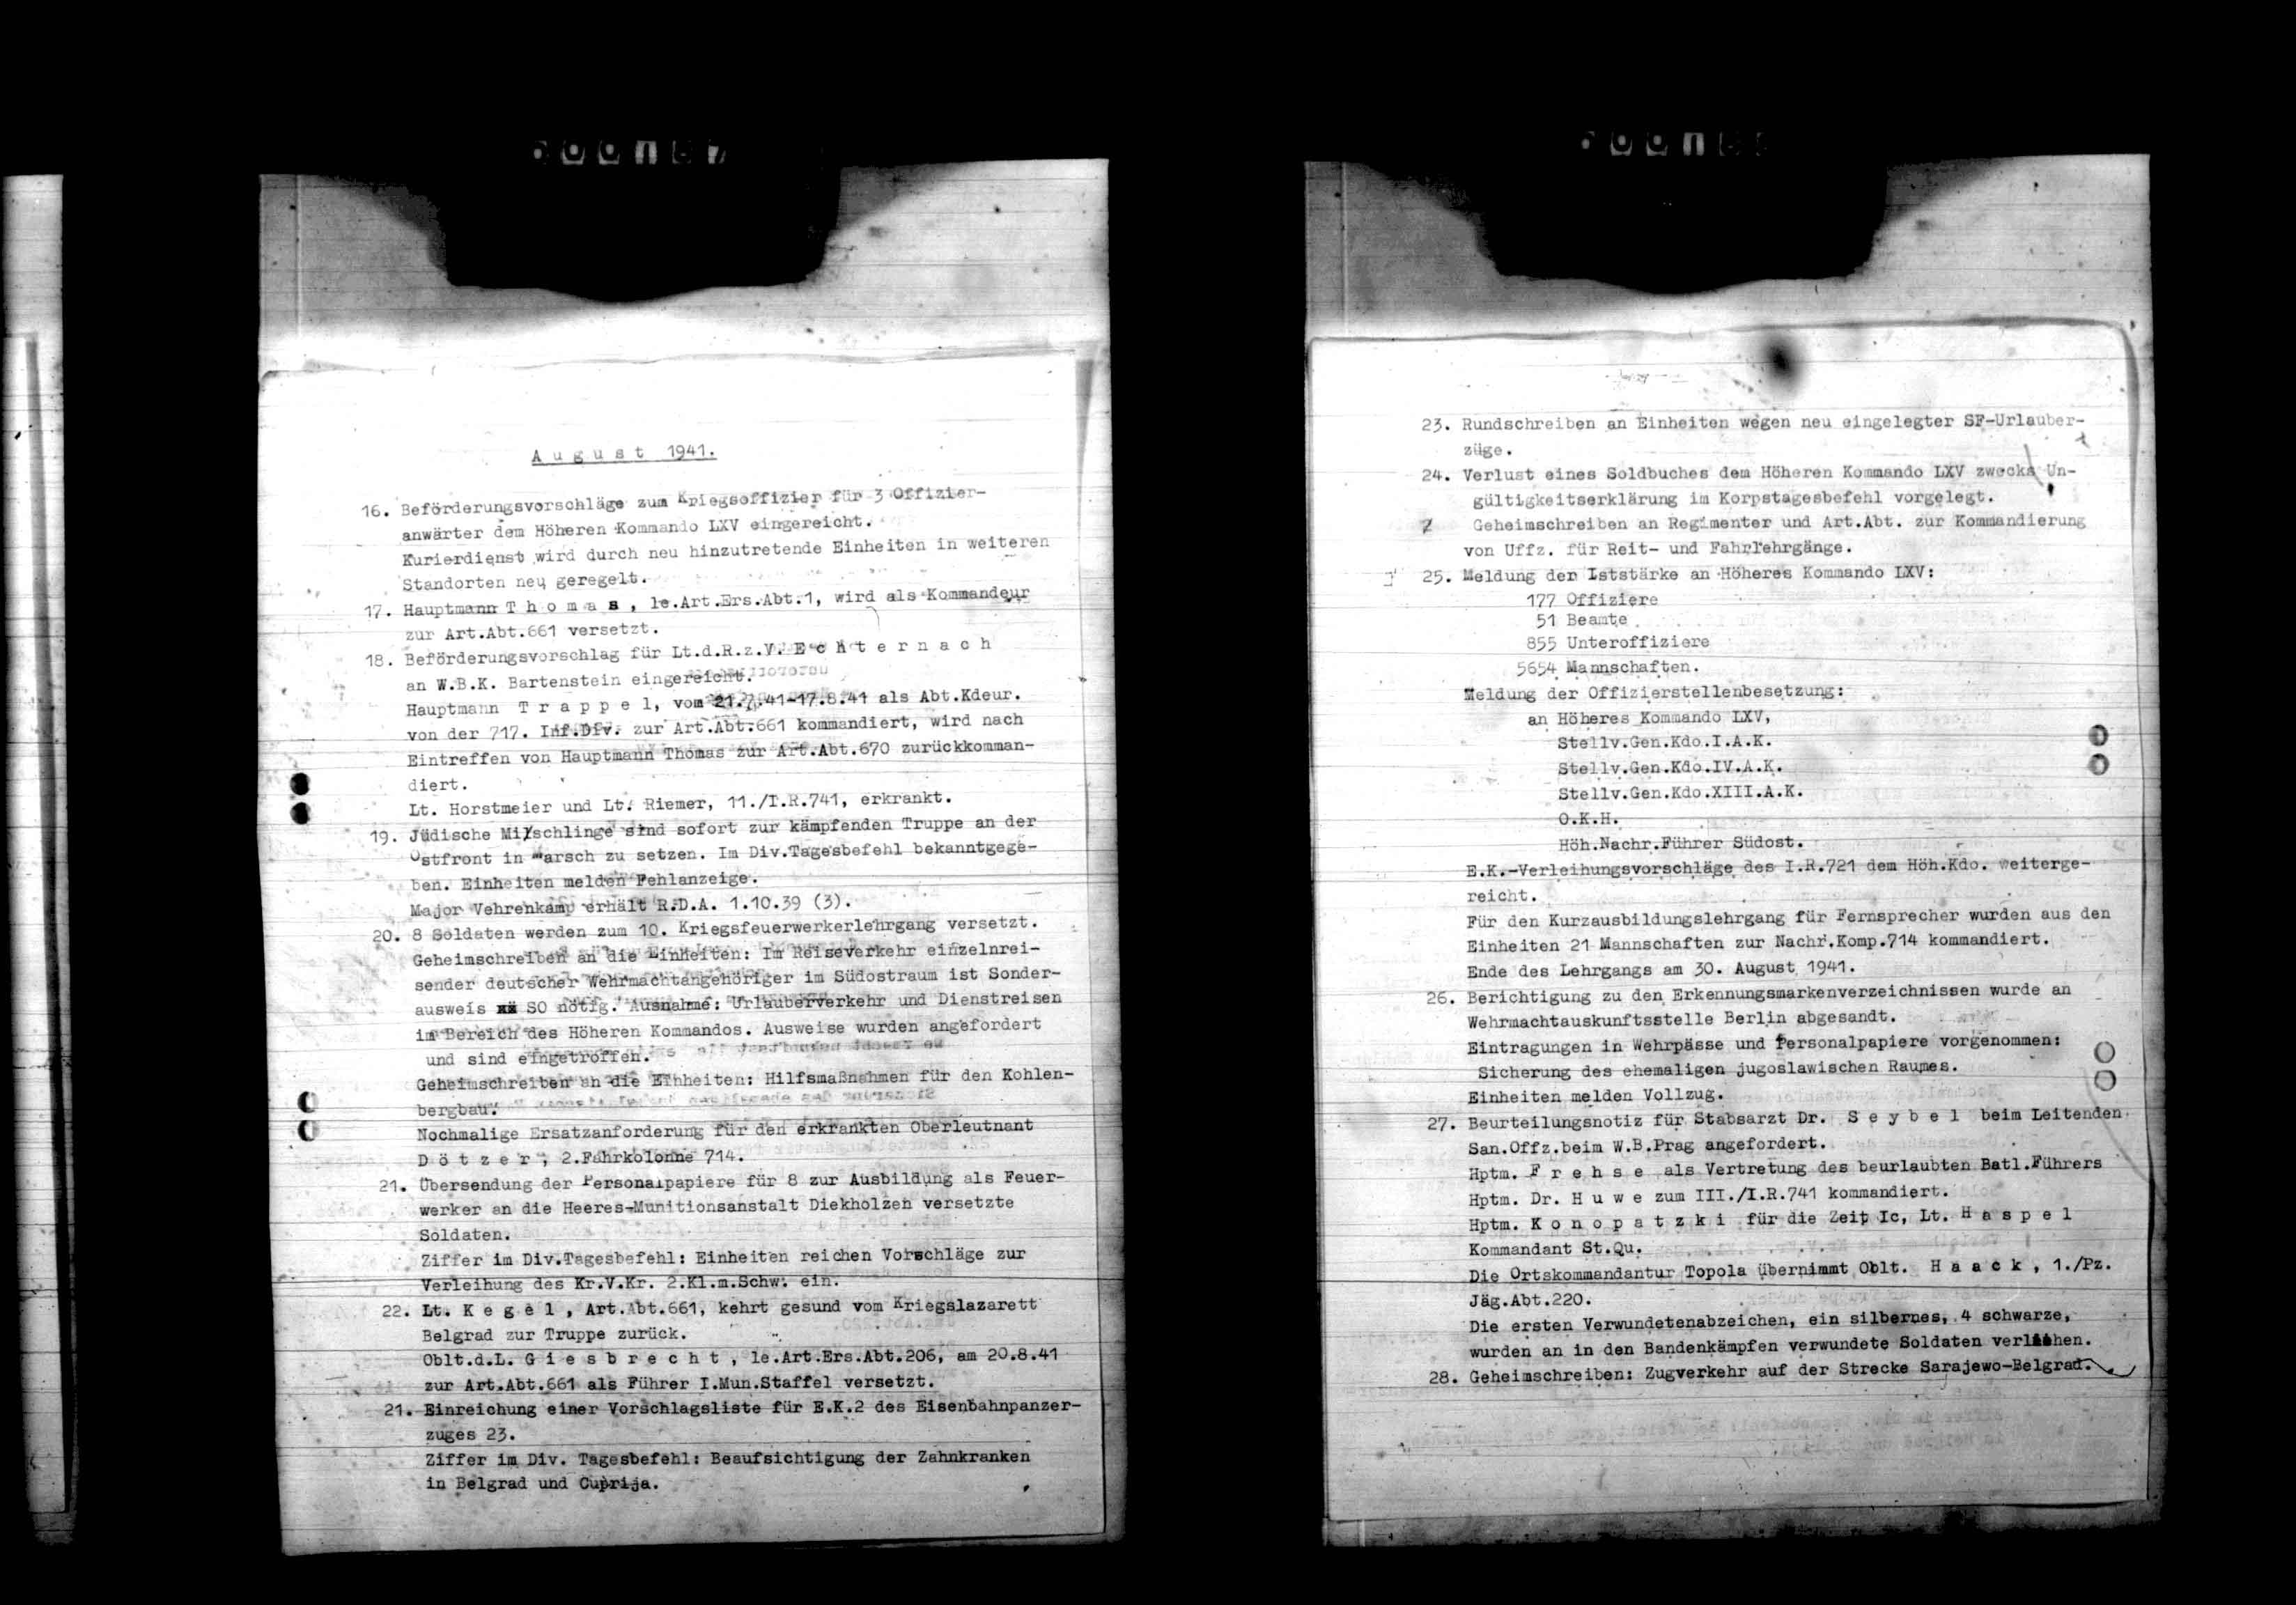 August 1941.
16. Beförderungsvorschläge zum Kriegsoffizier für 3 Offizier-
anwärter dem Höheren Kommando LXV eingereicht.
Kurierdienst wird durch neu hinzutretende Einheiten in weiteren
Standorten neu geregelt.
17. Hauptmann T h o m a s , le.Art.Ers.Abt.1, wird als Kommandeur
zur Art.Abt.661 versetzt.
18. Beförderungsvorschlag für Lt.d.R.z.V. E c h t e r n a c h
an W.B.K. Bartenstein eingereicht.
Hauptmann T r a p p e l, vom 21.7.41-17.8.41 als Abt.Kdeur.
von der 717. Inf.Div. zur Art.Abt.661 kommandiert, wird nach
Eintreffen von Hauptmann Thomas zur Art.Abt.670 zurückkomman-
diert.
Lt. Horstmeier und Lt. Riemer, 11./I.R.741, erkrankt.
19. Jüdische Mischlinge sind sofort zur kämpfenden Truppe an der
Ostfront in Marsch zu setzen. Im Div.Tagesbefehl bekanntgege-
ben. Einheiten melden Fehlanzeige.
Major Vehrenkamp erhält R.D.A. 1.10.39 (3).
20. 8 Soldaten werden zum 10. Kriegsfeuerwerkerlehrgang versetzt.
Geheimschreiben an die Einheiten: Im Reiseverkehr einzelnrei-
sender deutscher Wehrmachtangehöriger im Südostraum ist Sonder-
ausweis SO nötig. Ausnahme: Urlauberverkehr und Dienstreisen
im Bereich des Höheren Kommandos. Ausweise wurden angefordert
und sind eingetroffen.
Geheimschreiben an die Einheiten: Hilfsmaßnahmen für den Kohlen-
bergbau.
Nochmalige Ersatzanforderung für den erkrankten Oberleutnant
D ö t z e r , 2.Fahrkolonne 714.
21. Übersendung der Personalpapiere für 8 zur Ausbildung als Feuer-
werker an die Heeres-Munitionsanstalt Diekholzen versetzte
Soldaten.
Ziffer im Div.Tagesbefehl: Einheiten reichen Vorschläge zur
Verleihung des Kr.V.Kr. 2.Kl.m.Schw. ein.
22. Lt. K e g e l , Art.Abt.661, kehrt gesund vom Kriegslazarett
Belgrad zur Truppe zurück.
Oblt.d.L. G i e s b r e c h t , le.Art.Ers.Abt.206, am 20.8.41
zur Art.Abt.661 als Führer I.Mun.Staffel versetzt.
21. Einreichung einer Vorschlagsliste für E.K.2 des Eisenbahnpanzer-
zuges 23.
Ziffer im Div. Tagesbefehl: Beaufsichtigung der Zahnkranken
in Belgrad und Cuprija.
23. Rundschreiben an Einheiten wegen neu eingelegter SF-Urlauber-
züge.
24. Verlust eines Soldbuches dem Höheren Kommando LXV zwecks Un-
gültigkeitserklärung im Korpstagesbefehl vorgelegt.
Geheimschreiben an Regimenter und Art.Abt. zur Kommandierung
von Uffz. für Reit- und Fahrlehrgänge.
25. Meldung der Iststärke an Höheres Kommando LXV:
177 Offiziere
51 Beamte
855 Unteroffiziere
5654 Mannschaften.
Meldung der Offizierstellenbesetzung:
an Höheres Kommando LXV,
Stellv.Gen.Kdo.I.A.K.
Stellv.Gen.Kdo.IV.A.K.
Stellv.Gen.Kdo.XIII.A.K.
O.K.H.
Höh.Nachr.Führer Südost.
E.K.-Verleihungsvorschläge des I.R.721 dem Höh.Kdo. weiterge-
reicht.
Für den Kurzausbildungslehrgang für Fernsprecher wurden aus den
Einheiten 21 Mannschaften zur Nachr.Komp.714 kommandiert.
Ende des Lehrgangs am 30. August 1941.
26. Berichtigung zu den Erkennungsmarkenverzeichnissen wurde an
Wehrmachtauskunftsstelle Berlin abgesandt.
Eintragungen in Wehrpässe und Personalpapiere vorgenommen:
Sicherung des ehemaligen jugoslawischen Raumes.
Einheiten melden Vollzug.
27. Beurteilungsnotiz für Stabsarzt Dr. S e y b e l beim Leitenden
San.Offz.beim W.B.Prag angefordert.
Hptm. F r e h s e als Vertretung des beurlaubten Batl.Führers
Hptm. Dr. H u w e zum III./I.R.741 kommandiert.
Hptm. K o n o p a t z k i für die Zeit Ic, Lt. H a s p e l
Kommandant St.Qu.
Die Ortskommandantur Topola übernimmt Oblt. H a a c k , 1./Pz.
Jäg.Abt.220.
Die ersten Verwundetenabzeichen, ein silbernes, 4 schwarze,
wurden an in den Bandenkämpfen verwundete Soldaten verliehen.
28. Geheimschreiben: Zugverkehr auf der Strecke Sarajewo-Belgrad.